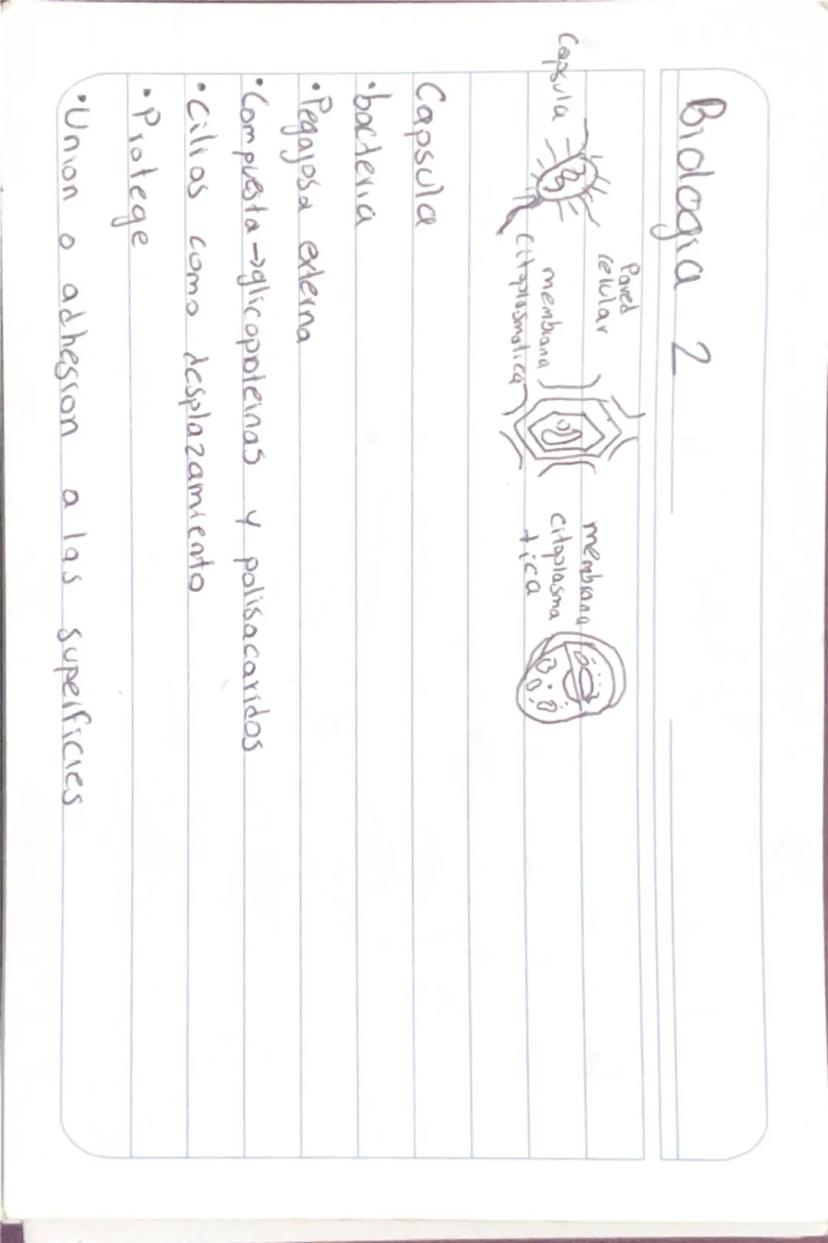 Biologia 2
Pared
celular
membrana
citoplasmatica
Capsula
membrana
citoplasma
tica
Capsula
• bacteria
• Pegajosa externa
• Compuesta → glicoproteinas y polisacaridos
• Cilios como desplazamiento
• Protege
• Union o adhesion a las superficies